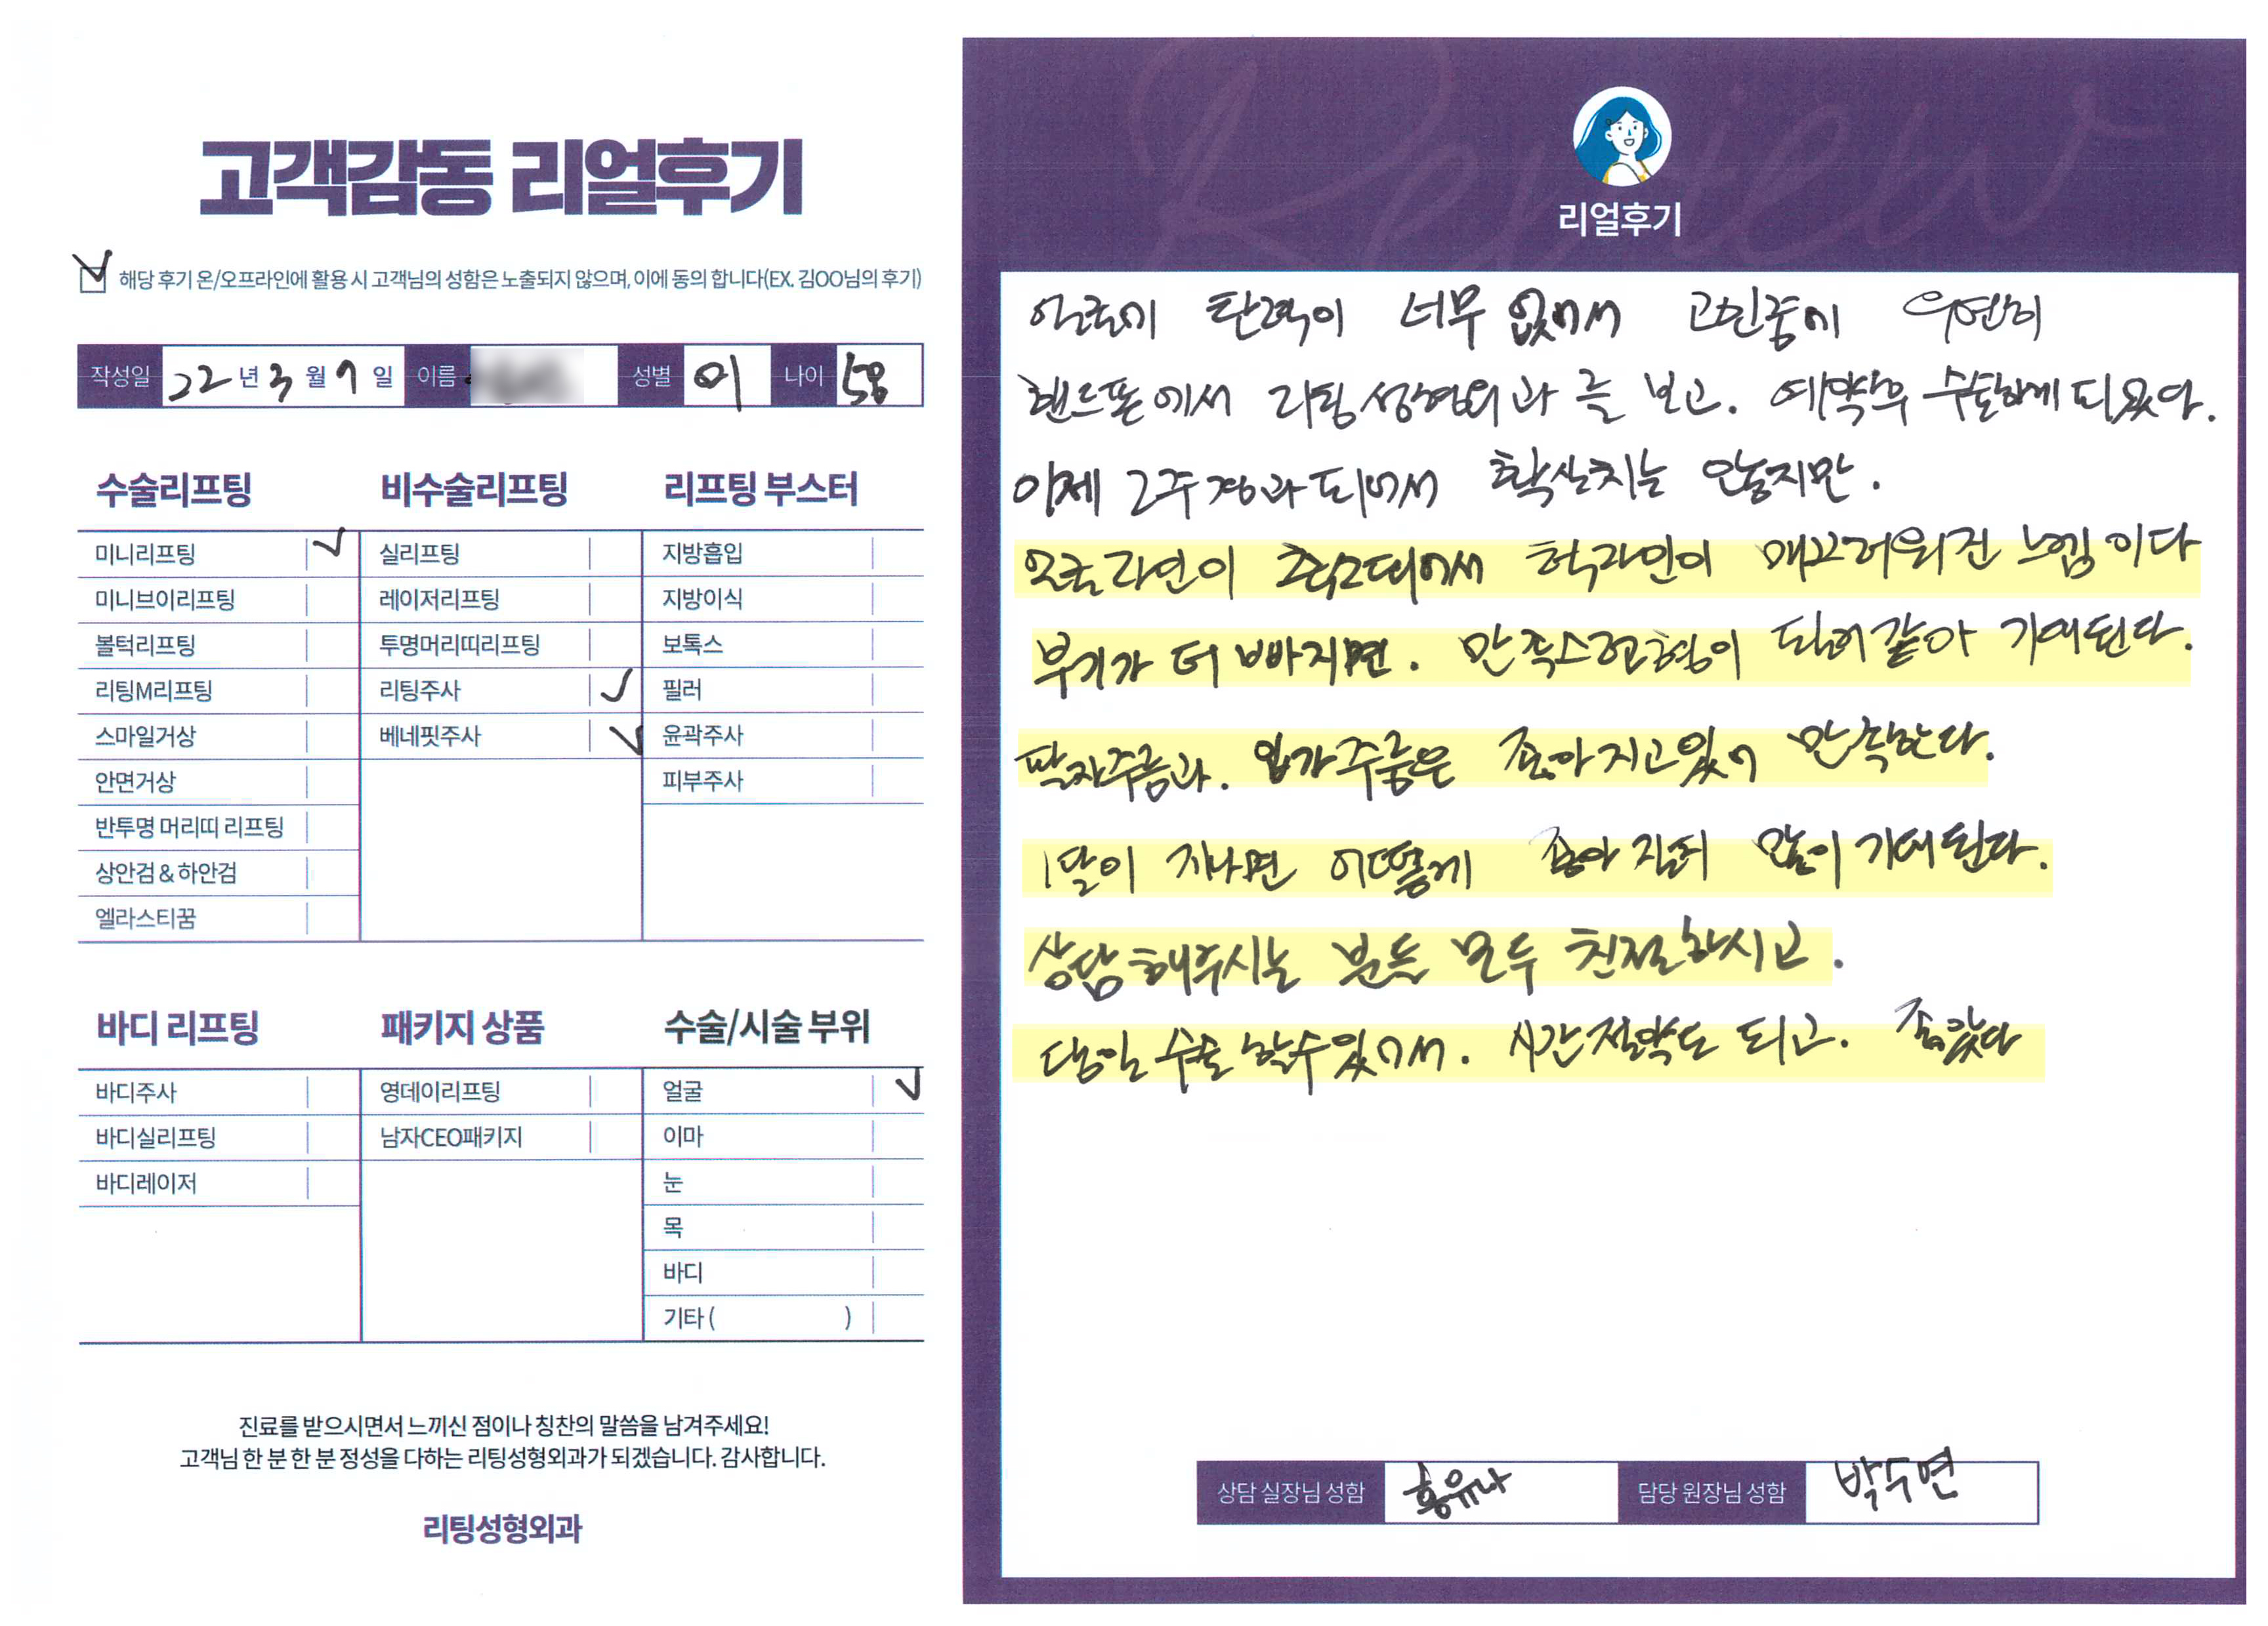 고객감동 리얼후기
해당 후기 온/오프라인에 활용 시 고객님의 성함은 노출되지 않으며, 이에 동의 합니다(EX. 김OO님의 후기)
작성일 22년 3월 9일 이름 성별 여 나이 58
수술리프팅
미니리프팅
미니브이리프팅
볼턱리프팅
리팅M리프팅
스마일거상
안면거상
반투명 머리띠 리프팅
상안검 & 하안검
엘라스티꿈
비수술리프팅
실리프팅
레이저리프팅
투명머리띠리프팅
리팅주사
베네핏주사
리프팅 부스터
지방흡입
지방이식
보톡스
필러
윤곽주사
피부주사
바디 리프팅
바디주사
바디실리프팅
바디레이저
패키지 상품
영데이리프팅
남자CEO패키지
수술/시술 부위
얼굴
이마
눈
목
바디
기타 ( )
진료를 받으시면서 느끼신 점이나 칭찬의 말씀을 남겨주세요!
고객님 한 분 한 분 정성을 다하는 리팅성형외과가 되겠습니다. 감사합니다.
리팅성형외과
Review
리얼후기
얼굴에 탄력이 너무 없어서 고민중에 우연히
핸드폰에서 리팅성형외과를 보고. 예약후 수술하게되었다.
이제 2주경과되어서 확실치는 않지만.
얼굴라인이 축소되어서 턱라인이 매끄러워진 느낌이다
부기가 더 빠지면. 만족스런 형이 될거같아 기대된다.
팔자주름과. 입가주름은 좋아지고있어 만족한다.
1달이 지나면 어떻게 좋아질지 많이 기대된다.
상담해주시는 분들 모두 친절하시고.
당일 수술 할수있어서. 시간절약도 되고. 좋았다
상담 실장님 성함 홍유나 담당 원장님 성함 박수연